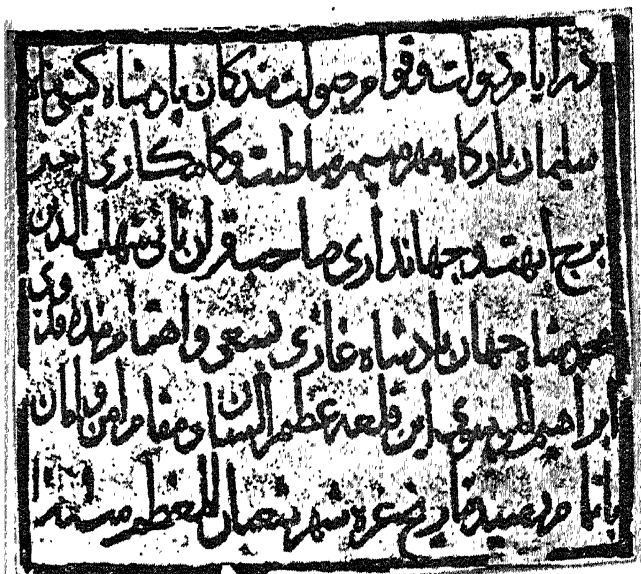 در ایام دولت و قوام صولت بندکان پادشاه کیتی پناه
سلیمان بارکاه مهر سپهر سلطنت و کامکاری اختر
برج ابهت و جهانداری صاحب قران ثانی شهاب الدین
محمد شاه جهان بادشاه غازی بسعی و اهتمام بنده فدوی
ابراهیم الموسوی این قلعه عظیم الشان و مقام امن و امان
باتمام رسید بتاریخ غره شهر شعبان المعظم سنه